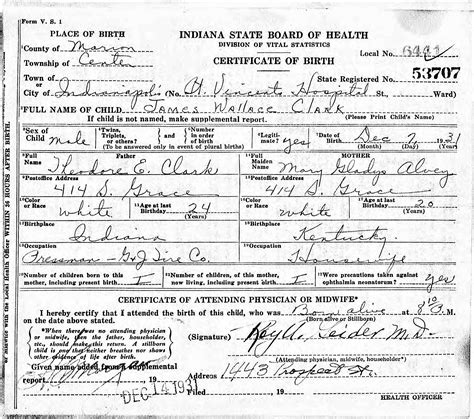 Form V. S. 1
INDIANA STATE BOARD OF HEALTH
DIVISION OF VITAL STATISTICS
CERTIFICATE OF BIRTH
PLACE OF BIRTH
County of Marion
Local No.
Township of Center
State Registered No. 53707
Town of
City of Indianapolis St. Vincents Hospital St. Ward)
FULL NAME OF CHILD. James Wallace Clark
If child is not named, make supplemental report. (Please Print Child's Name)
Sex of Child male Twins, Triplets, or others? Number in order of birth (To be answered only in event of plural births) Legitimate? yes Date of Birth Dec 2 1931
Full Name Father Theodore E. Clark
Full Maiden Name MOTHER Mary Gladys Alvey
Postoffice Address 414 S. Grace
Postoffice Address 414 S. Grace
Color or Race white Age at last Birthday 24 (Years)
Color or Race white Age at last Birthday 20 (Years)
Birthplace Indiana
Birthplace Kentucky
Occupation Pressman - G & J Tire Co.
Occupation Housewife
Number of children born to this mother, including present birth I
Number of children, of this mother, now living, including present birth I
Were precautions taken against ophthalmia neonatorum? yes
CERTIFICATE OF ATTENDING PHYSICIAN OR MIDWIFE*
I hereby certify that I attended the birth of this child, who was Born alive at M.
on the date above stated. (Born alive or Stillborn)
*When there was no attending physician
or midwife, then the father, householder,
etc., should make this return. A stillborn
child is one that neither breathes nor shows
other evidence of life after birth.
(Signature) M.D.
(Attending physician, midwife, householder*)
Given name added from supplemental
report 19
Address 1443 Prospect St.
DEC 14 1931
19
HEALTH OFFICER
with the Local Health Officer WITHIN 36 HOURS AFTER BIRTH.